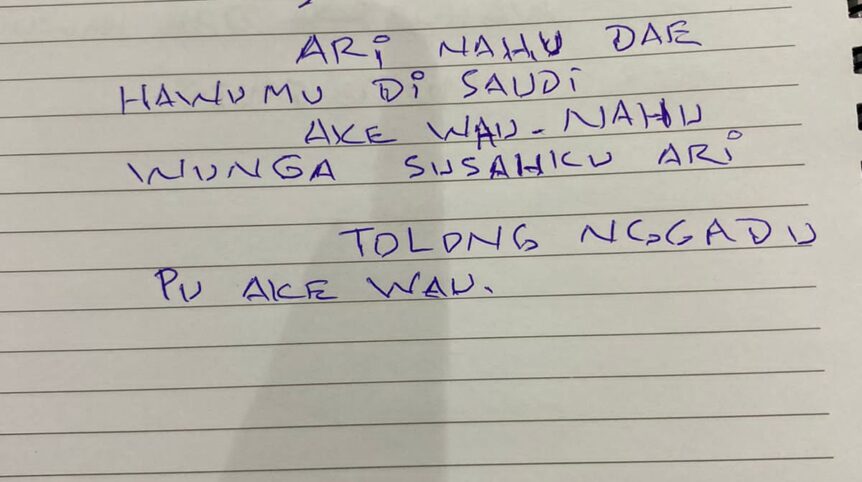 ARi NAHU DAE
HAWUMU Di SAUDi
AKE WAU. NAHU
WUNGA SUSAHKU ARi
TOLONG NGGADU
PU AKE WAU.